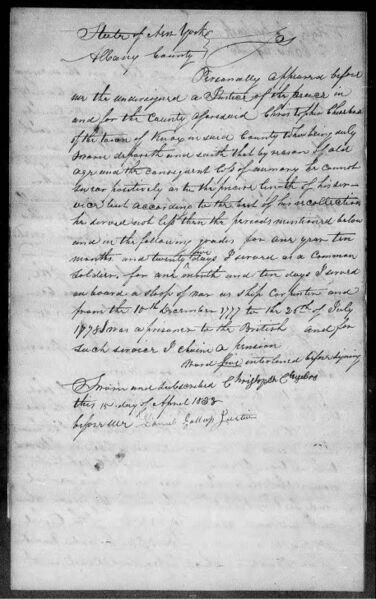 State of New York
Albany County
Personally appeared before
me the undersigned a Justice of the Peace in
and for the County aforesaid Christopher
of the town of Knox in said County who being duly
sworn deposeth and saith that by reason of old
age and the consequent loss of memory he cannot
swear positively as to the precise length of his ser-
vice but according to the best of his recollection
he served not less than the periods mentioned below
and in the following grades for one year ten
months and twenty five days I served as a Common
soldier, for one month and ten days I served
on board a sloop of war as ship Carpenter and
from the 10th December 1777 to the 26th of July
1778 I was a prisoner to the British and for
such service I claim a pension
Word five interlined before signing
Sworn and subscribed Christopher
this 15 day of April 1833
before me Gallup Justice